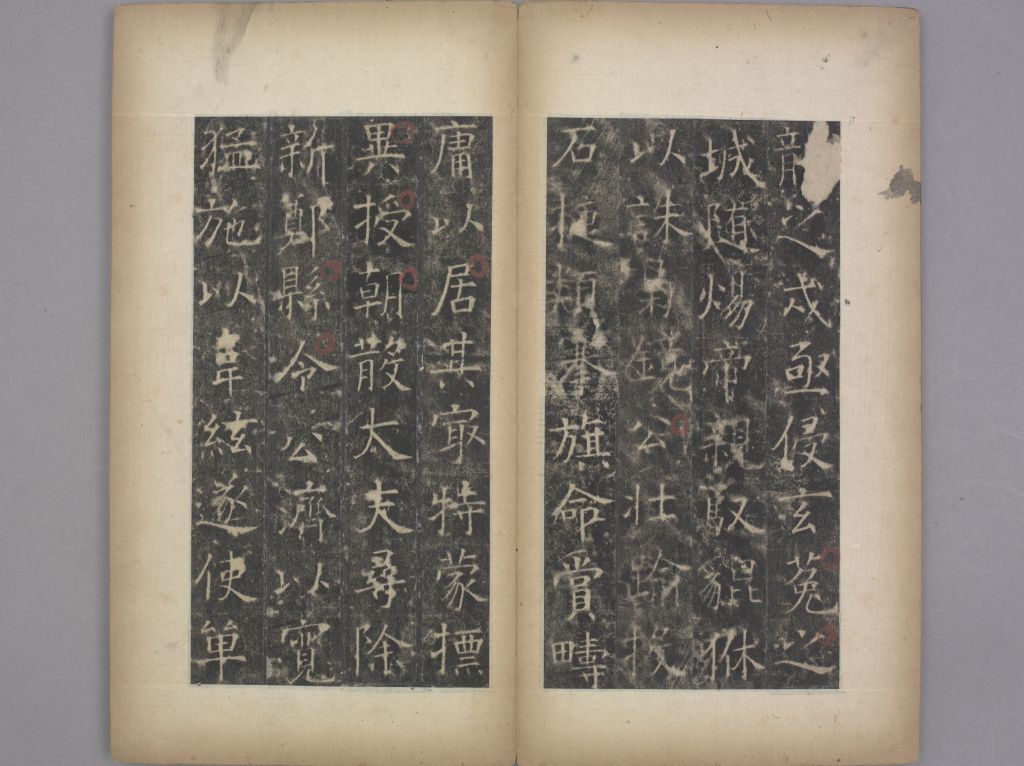 龍之戍亟侵玄菟之
城隨煬帝親馭貔貅
以誅梟鏡公壯踰投
石頻搴旗命賞疇
庸以居其㝡特蒙標
異授朝散太夫尋除
新鄭縣令公濟以寬
猛施以韋絃遂使單